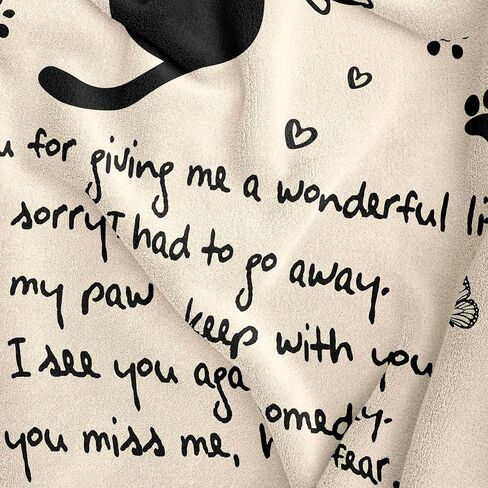 u for giving me a wonderful li
sorry I had to go away.
my paw keep with you
I see you aga omeday.
you miss me, fear.